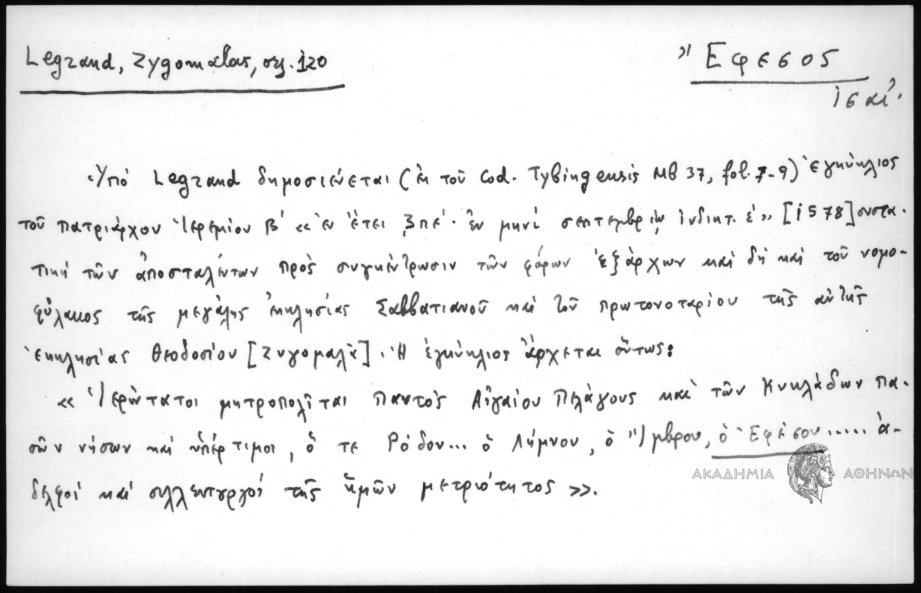 Legrand, Zygomalas, σελ. 120
Ἔφεσος
ις αἰ.
Ὑπό Legrand δημοσιεύεται (ἐκ τοῦ Cod. Tybingensis Mb 37, fol. 7-9) ἐγκύκλιος
τοῦ πατριάρχου Ἱερεμίου Β΄ «ἐν ἔτει ͵ζπζ΄. ἐν μηνί σεπτεμβρίῳ ἰνδικτ. ἑ΄» [1578] συστα-
τική τῶν ἀποσταλέντων πρὸς συγκέντρωσιν τῶν φόρων ἐξάρχων καί δή καί τοῦ νομο-
φύλακος τῆς μεγάλης ἐκκλησίας Σαββατιανοῦ καί τοῦ πρωτονοταρίου τῆς αὐτῆς
ἐκκλησίας Θεοδοσίου [Ζυγομαλᾶ]. Ἡ ἐγκύκλιος ἄρχεται οὕτως:
« Ἱερώτατοι μητροπολῖται παντὸς Αἰγαίου Πελάγους καί τῶν Κυκλάδων πα-
σῶν νήσων καί ὑπέρτιμοι, ὅ τε Ρόδου... ὁ Λήμνου, ὁ Ἴμβρου, ὁ Ἐφέσου..... ἀ-
δελφοί καί συλλειτουργοί τῆς ἡμῶν μετριότητος».
ΑΚΑΔΗΜΙΑ ΑΘΗΝΩΝ